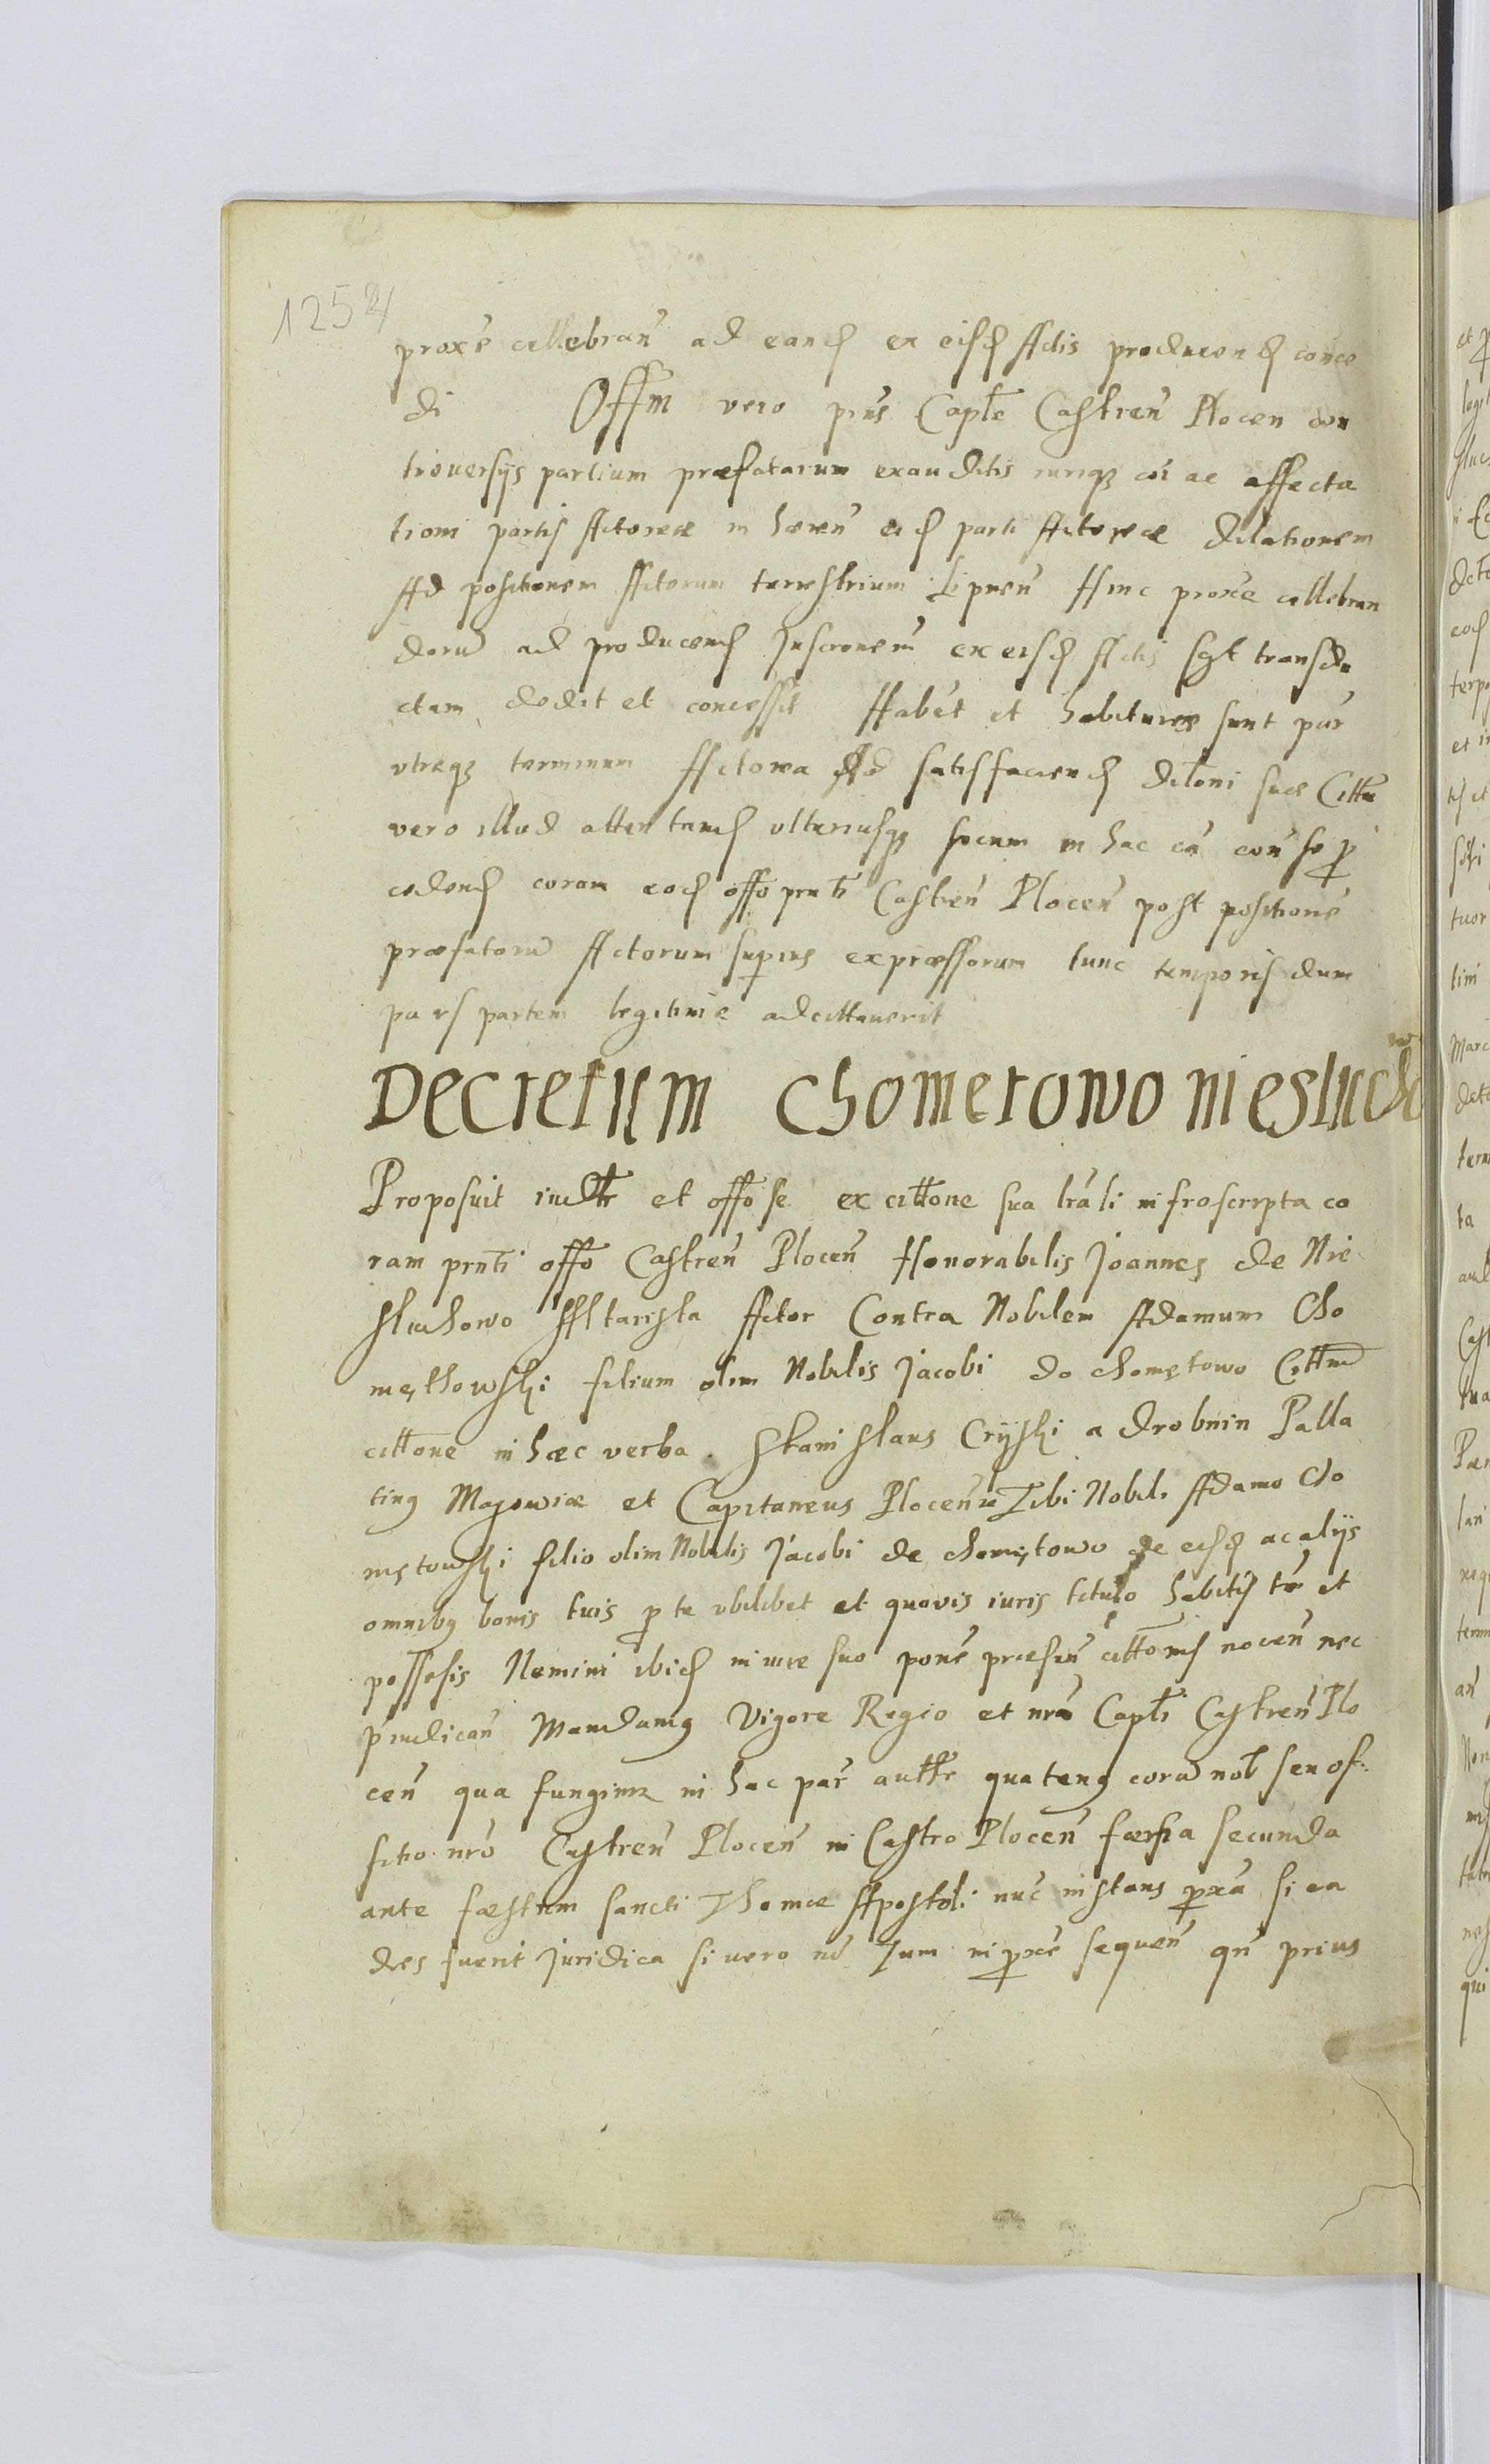 1254
proxe cellebran ad eand ex eisd Actis producend conce
di Offm vero prns Caplē Castren Plocen con
trouersijs partium præfatarum exauditis iurique cōi ac affecta
tioni partis Actoreæ in hæren eid parti Actoreæ dilationem
Ad positionem Actorum terrestrium Lipnen Hinc proxe cellebran
dorū ad producend Inscronem ex eisd Actis sgt transdu
ctam dedit et concessit Habēt et habituræ sunt par
vtraque terminum Actorea Ad satisfaciend dilōni suæ Citta
vero illud attentand vlteriusque secum in hac cā coñ se p
cedend coram eod offo prnti Castren Plocen post positione
præfatorū Actorum superius expræssorum tunc temporis dum
pars partem legitime adcittauerit
Decretum Chometowo niesluch
Proposuit iudtr et offose ex cittone sua lrāli infroscripta co
ram prnti offo Castren Plocen Honorabilis Joannes de Nie
sluchowo Altarista Actor Contra Nobilem Adamum Cho
męthowski filium olim Nobilis Jacobi de chomętowo Cittm
cittone in hæc verba. Stanislaus Crijski a drobnin Palla
tinus Mazowiæ et Capitaneus Plocen Tibi Nobili Adamo Cho
mętowski filio olim Nobilis Jacobi de chomętowo de eisd ac alijs
omnibus bonis tuis p te vbilibet et quovis iuris titulo habitis tn et
possesis Nemini ibid in iure suo pone præsen cittonis nocen nec
piudican Mandamus Vigore Regio et nra Capli Castren Plo
cen qua fungimur in hac par autte quatenus corā nob seu of
ficio nro Castren Plocen in Castro Plocen færia secunda
ante fæstum sancti Thomæ Apostoli nuc instans pxa si ea
dies fuerit Juridica si uero nō Tum in pxe sequen qn prius